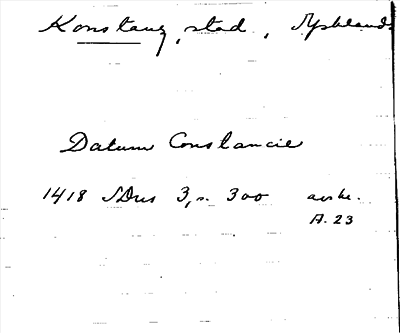 Konstanz, stad, Tyskland
Datum Constancie
1418 SDns 3, s. 300 avskr.
A. 23